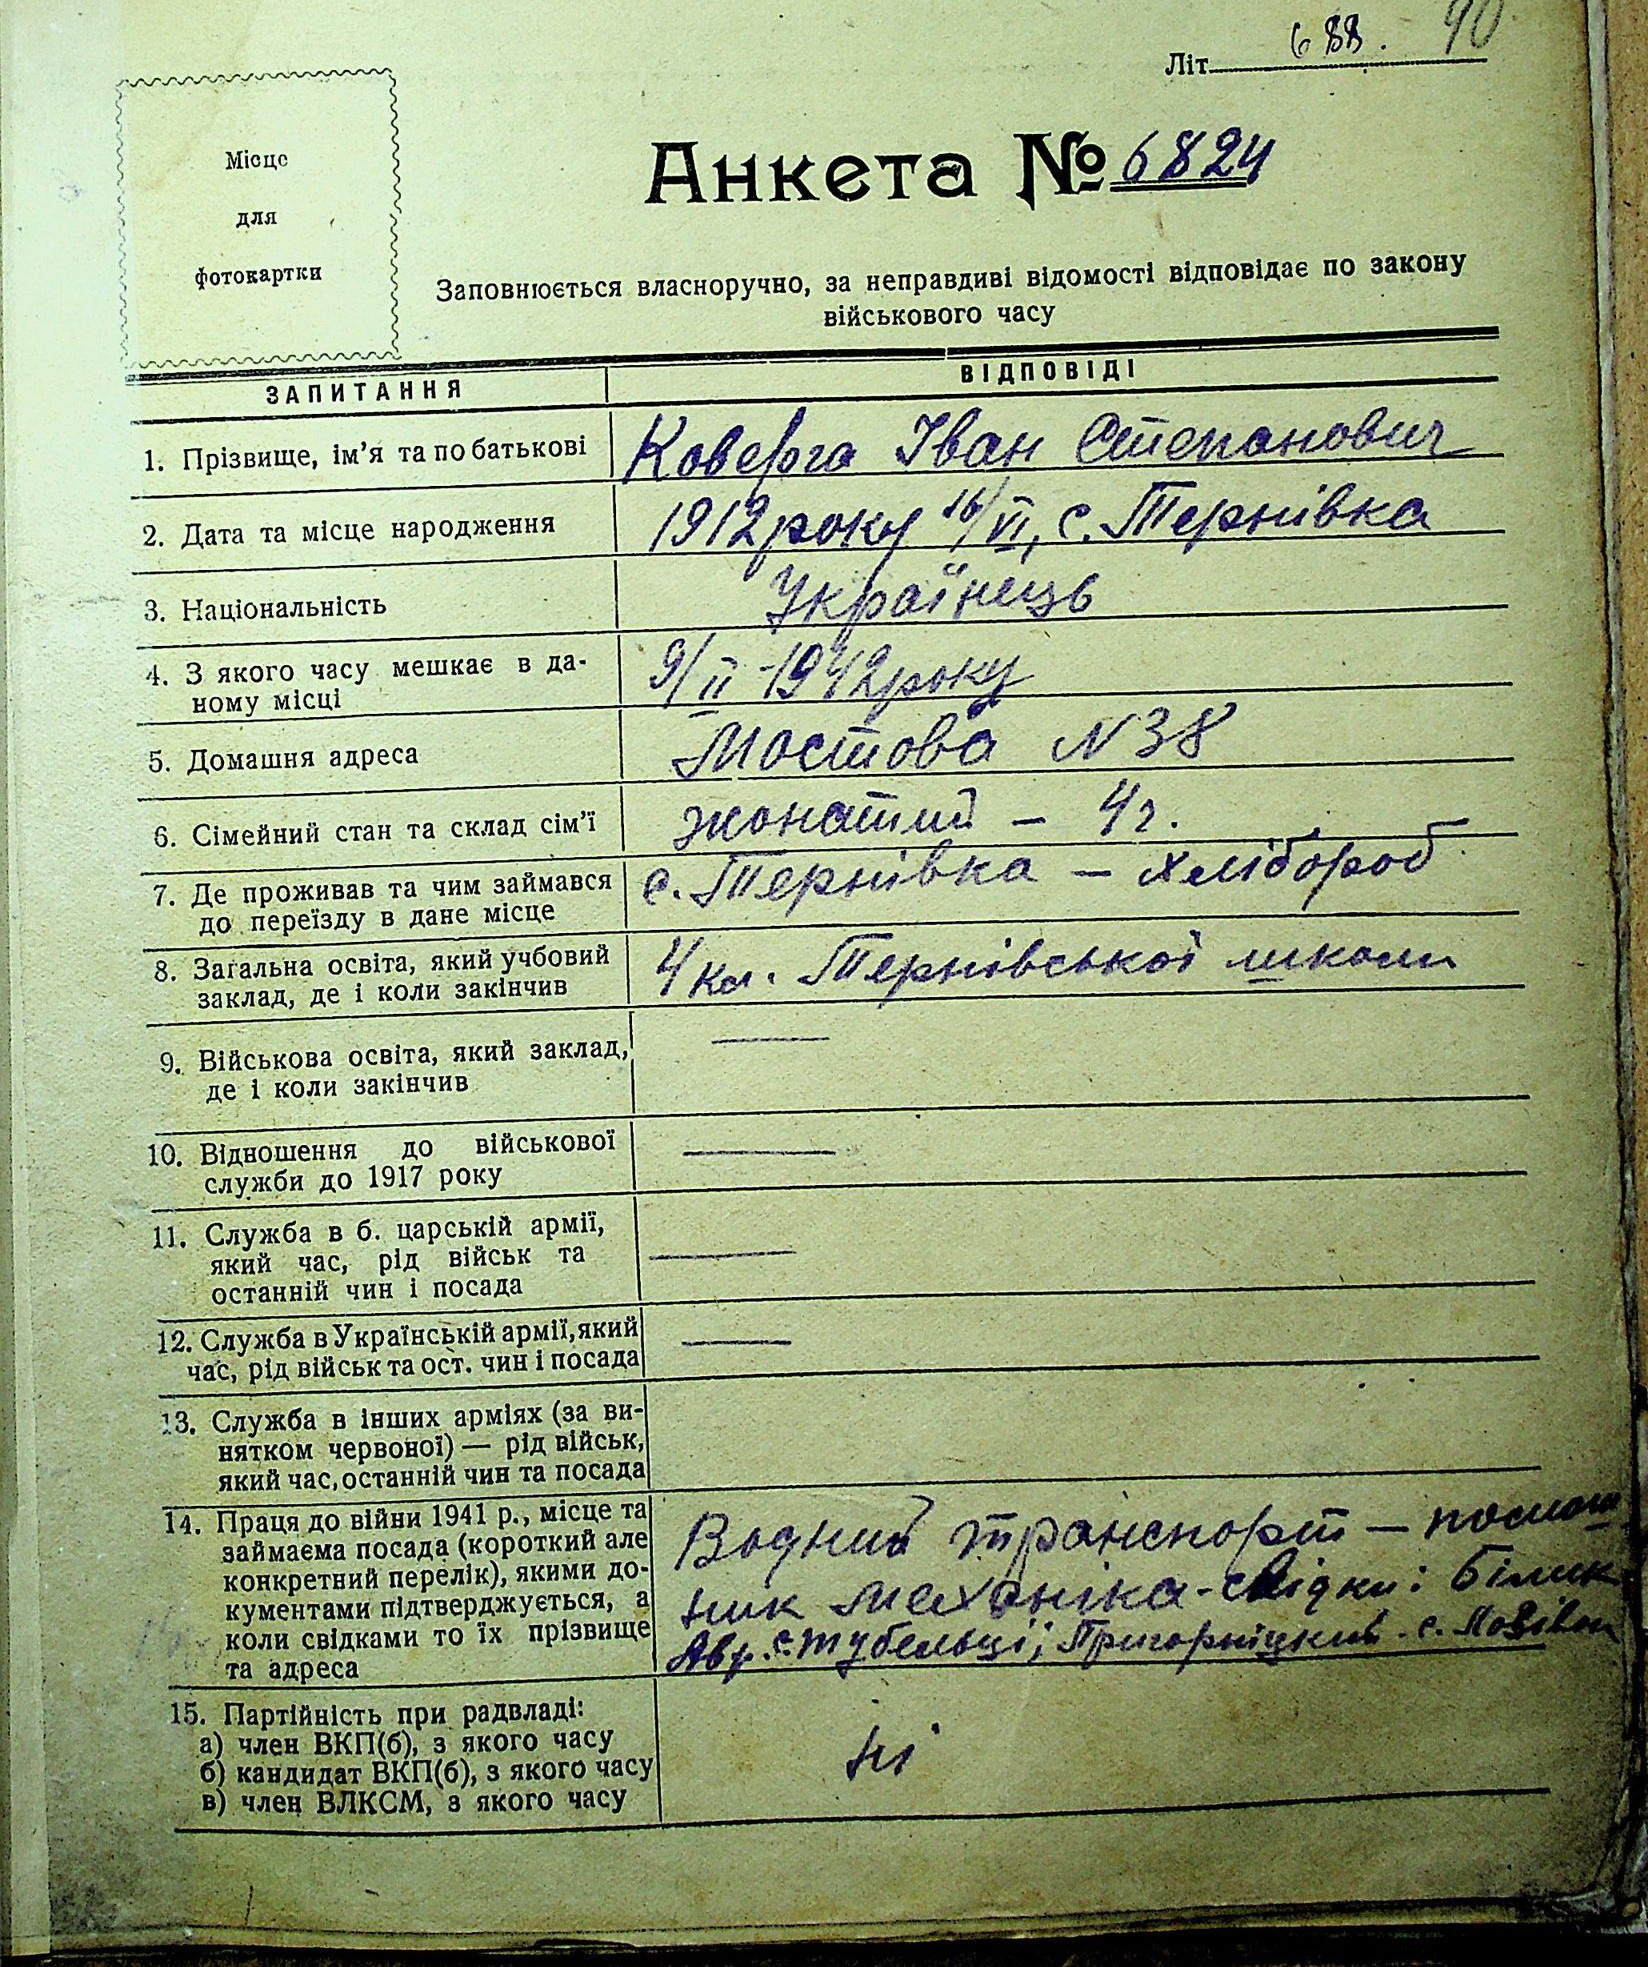 90
Літ. 688.
Місце
для
фотокартки
Анкета № 6824
Заповнюється власноручно, за неправдиві відомості відповідає по закону
військового часу
ЗАПИТАННЯ
ВІДПОВІДІ
1. Прізвище, ім'я та по батькові
Коверга Іван Степанович
2. Дата та місце народження
1912 року 16/VI, с. Тернівка
3. Національність
Українець
4. З якого часу мешкає в да-
ному місці
9/II-1942 року
5. Домашня адреса
Мостова N 38
6. Сімейний стан та склад сім'ї
жонатий – 4 ч.
7. Де проживав та чим займався
до переїзду в дане місце
с. Тернівка – хлібороб
8. Загальна освіта, який учбовий
заклад, де і коли закінчив
4 кл. Тернівської школи
9. Військова освіта, який заклад,
де і коли закінчив
—
10. Відношення до військової
служби до 1917 року
—
11. Служба в б. царській армії,
який час, рід військ та
останній чин і посада
—
12. Служба в Українській армії, який
час, рід військ та ост. чин і посада
—
13. Служба в інших арміях (за ви-
нятком червоної) — рід військ,
який час, останній чин та посада
14. Праця до війни 1941 р., місце та
займаєма посада (короткий але
конкретний перелік), якими до-
кументами підтверджується, а
коли свідками то їх прізвище
та адреса
Водний транспорт – помош
ник механіка - свідки: Білик
Авр. с. Тубельці; Пригорніцкий с.
15. Партійність при радвладі:
а) член ВКП(б), з якого часу
б) кандидат ВКП(б), з якого часу
в) член ВЛКСМ, з якого часу
ні